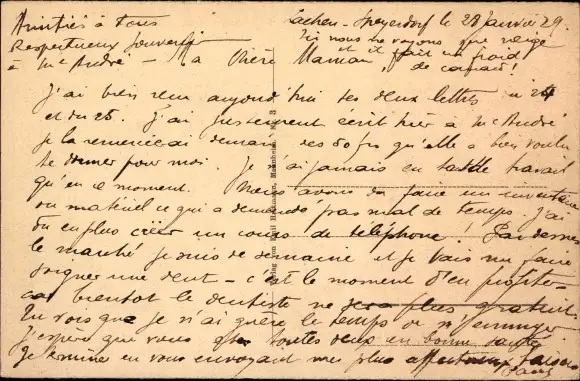 Amitiés à tous
Respectueux souvenir
à Mme André
Lachen-Speyerdorf le 28 Janvier 29.
Ici nous ne voyons que neige
et il fait un froid
de canard!
Chère Maman,
J'ai bien reçu aujourd'hui tes deux lettres du 24
et du 25. J'ai justement écrit hier à Mme André
je la remercierai demain des 50 frs qu'elle a bien voulu
te donner pour moi. Je n'ai jamais eu tant de travail
qu'en ce moment. Nous avons dû faire un inventaire
du matériel ce qui a demandé pas mal de temps. J'ai
du en plus créer un cours de téléphone! Par dessus
le marché je suis de semaine et je vais me faire
soigner une dent - c'est le moment d'en profiter
car bientôt le dentiste ne sera plus gratuit.
Tu vois que je n'ai guère le temps de m'ennuyer
J'espère que vous êtes toutes deux en bonne santé
Je termine en vous envoyant mes plus affectueux baisers
Verlag von Emil Hartmann, Mannheim.